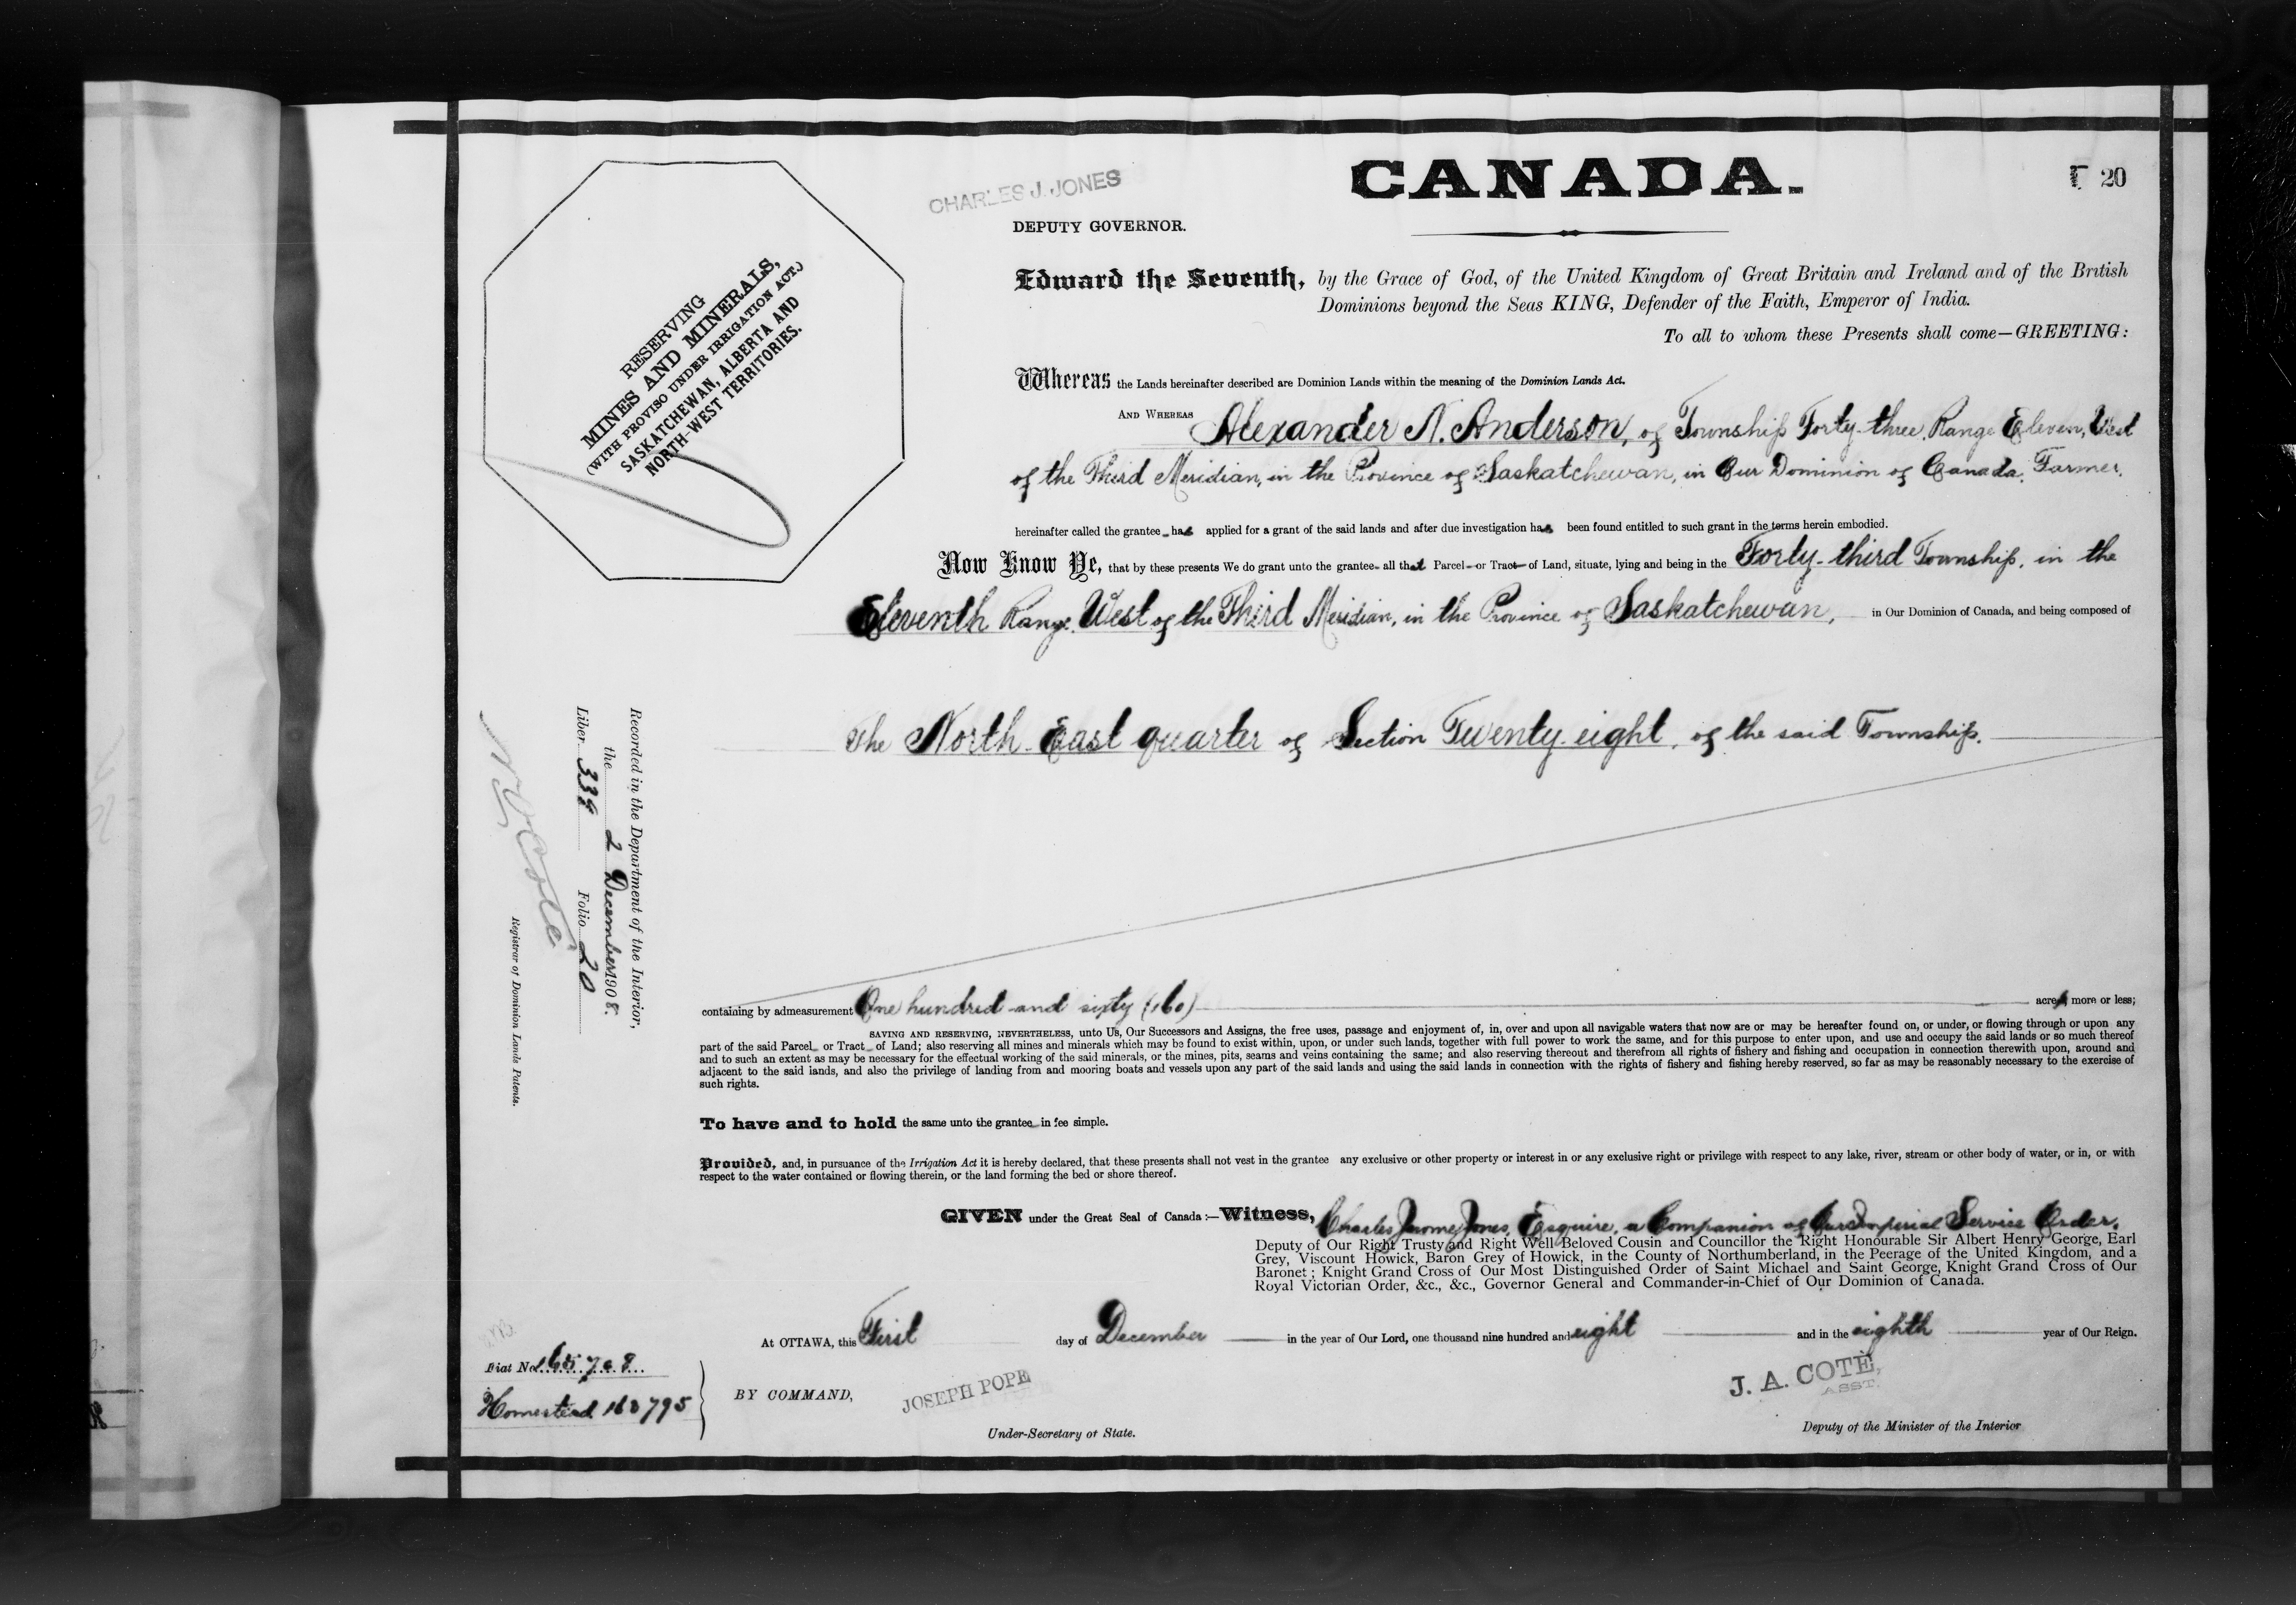 CANADA.
20
CHARLES J. JONES
DEPUTY GOVERNOR.
RESERVING
MINES AND MINERALS,
(WITH PROVISO UNDER IRRIGATION ACT.)
SASKATCHEWAN, ALBERTA AND
NORTH-WEST TERRITORIES.
Edward the Seventh, by the Grace of God, of the United Kingdom of Great Britain and Ireland and of the British
Dominions beyond the Seas KING, Defender of the Faith, Emperor of India.
To all to whom these Presents shall come—GREETING:
Whereas the Lands hereinafter described are Dominion Lands within the meaning of the Dominion Lands Act.
AND WHEREAS Alexander N. Anderson, of Township Forty-three, Range Eleven, West
of the Third Meridian, in the Province of Saskatchewan, in Our Dominion of Canada, Farmer,
hereinafter called the grantee has applied for a grant of the said lands and after due investigation has been found entitled to such grant in the terms herein embodied.
Now Know Ye, that by these presents We do grant unto the grantee all that Parcel or Tract of Land, situate, lying and being in the Forty-third Township, in the
Eleventh Range, West of the Third Meridian, in the Province of Saskatchewan, in Our Dominion of Canada, and being composed of
The North East quarter of Section Twenty-eight, of the said Township.
containing by admeasurement One hundred and sixty (160) acres more or less;
SAVING AND RESERVING, NEVERTHELESS, unto Us, Our Successors and Assigns, the free uses, passage and enjoyment of, in, over and upon all navigable waters that now are or may be hereafter found on, or under, or flowing through or upon any
part of the said Parcel or Tract of Land; also reserving all mines and minerals which may be found to exist within, upon, or under such lands, together with full power to work the same, and for this purpose to enter upon, and use and occupy the said lands or so much thereof
and to such an extent as may be necessary for the effectual working of the said minerals, or the mines, pits, seams and veins containing the same; and also reserving thereout and therefrom all rights of fishery and fishing and occupation in connection therewith upon, around and
adjacent to the said lands, and also the privilege of landing from and mooring boats and vessels upon any part of the said lands and using the said lands in connection with the rights of fishery and fishing hereby reserved, so far as may be reasonably necessary to the exercise of
such rights.
To have and to hold the same unto the grantee in fee simple.
Provided, and, in pursuance of the Irrigation Act it is hereby declared, that these presents shall not vest in the grantee any exclusive or other property or interest in or any exclusive right or privilege with respect to any lake, river, stream or other body of water, or in, or with
respect to the water contained or flowing therein, or the land forming the bed or shore thereof.
GIVEN under the Great Seal of Canada:—Witness, Charles Jerome Jones, Esquire, a Companion of Our Imperial Service Order,
Deputy of Our Right Trusty and Right Well-Beloved Cousin and Councillor the Right Honourable Sir Albert Henry George, Earl
Grey, Viscount Howick, Baron Grey of Howick, in the County of Northumberland, in the Peerage of the United Kingdom, and a
Baronet; Knight Grand Cross of Our Most Distinguished Order of Saint Michael and Saint George, Knight Grand Cross of Our
Royal Victorian Order, &c., &c., Governor General and Commander-in-Chief of Our Dominion of Canada.
At OTTAWA, this First day of December in the year of Our Lord, one thousand nine hundred and eight and in the eighth year of Our Reign.
BY COMMAND,
JOSEPH POPE
Under-Secretary of State.
J. A. COTÉ,
ASST.
Deputy of the Minister of the Interior
Fiat No. 165708
Homestead 163795
Recorded in the Department of the Interior,
the 2 December 1908.
Liber 338 Folio 20
N O Coté
Registrar of Dominion Lands Patents.